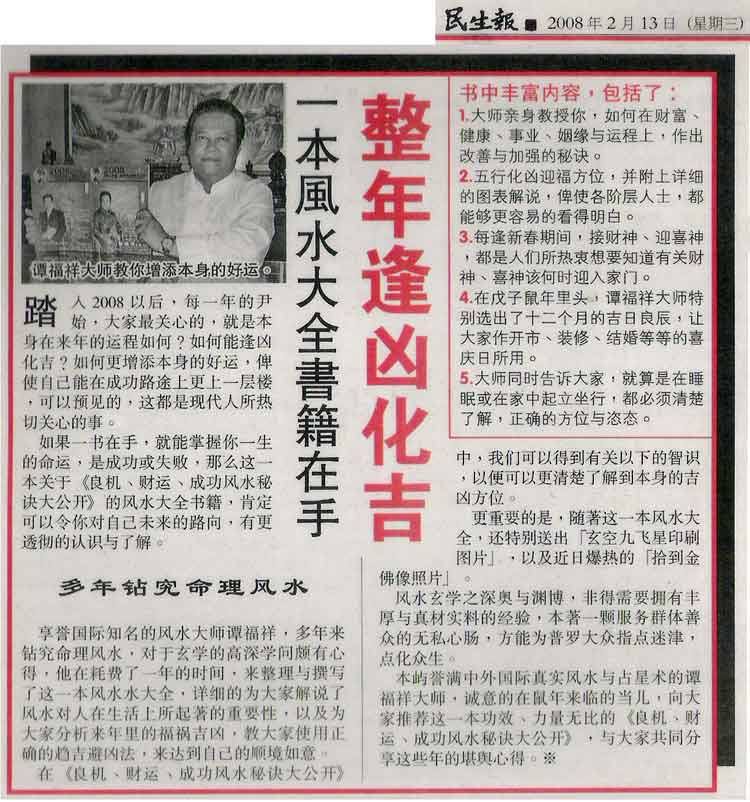 民生報 2008年2月13日（星期三）
整年逢凶化吉
一本風水大全書籍在手
谭福祥大师教你增添本身的好运。
踏入2008以后，每一年的尹
始，大家最关心的，就是本
身在来年的运程如何？如何能逢凶
化吉？如何更增添本身的好运，俾
使自己能在成功路途上更上一层楼
，可以预见的，这都是现代人所热
切关心的事。
如果一书在手，就能掌握你一生
的命运，是成功或失败，那么这一
本关于《良机、财运、成功风水秘
诀大公开》的风水大全书籍，肯定
可以令你对自己未来的路向，有更
透彻的认识与了解。
多年钻究命理风水
享誉国际知名的风水大师谭福祥，多年来
钻究命理风水，对于玄学的高深学问颇有心
得，他在耗费了一年的时间，来整理与撰写
了这一本风水水大全，详细的为大家解说了
风水对人在生活上所起著的重要性，以及为
大家分析来年里的福祸吉凶，教大家使用正
确的趋吉避凶法，来达到自己的顺境如意。
在《良机、财运、成功风水秘诀大公开》
书中丰富内容，包括了：
1.大师亲身教授你，如何在财富、
健康、事业、姻缘与运程上，作出
改善与加强的秘诀。
2.五行化凶迎福方位，并附上详细
的图表解说，俾使各阶层人士，都
能够更容易的看得明白。
3.每逢新春期间，接财神、迎喜神
，都是人们所热衷想要知道有关财
神、喜神该何时迎入家门。
4.在戊子鼠年里头，谭福祥大师特
别选出了十二个月的吉日良辰，让
大家作开市、装修、结婚等等的喜
庆日所用。
5.大师同时告诉大家，就算是在睡
眠或在家中起立坐行，都必须清楚
了解，正确的方位与恣态。
中，我们可以得到有关以下的智识
，以便可以更清楚了解到本身的吉
凶方位。
更重要的是，随著这一本风水大
全，还特别送出「玄空九飞星印刷
图片」，以及近日爆热的「拾到金
佛像照片」。
风水玄学之深奥与渊博，非得需要拥有丰
厚与真材实料的经验，本著一颗服务群体善
众的无私心肠，方能为普罗大众指点迷津，
点化众生。
本屿誉满中外国际真实风水与占星术的谭
福祥大师，诚意的在鼠年来临的当儿，向大
家推荐这一本功效、力量无比的《良机、财
运、成功风水秘诀大公开》，与大家共同分
享这些年的堪舆心得。※